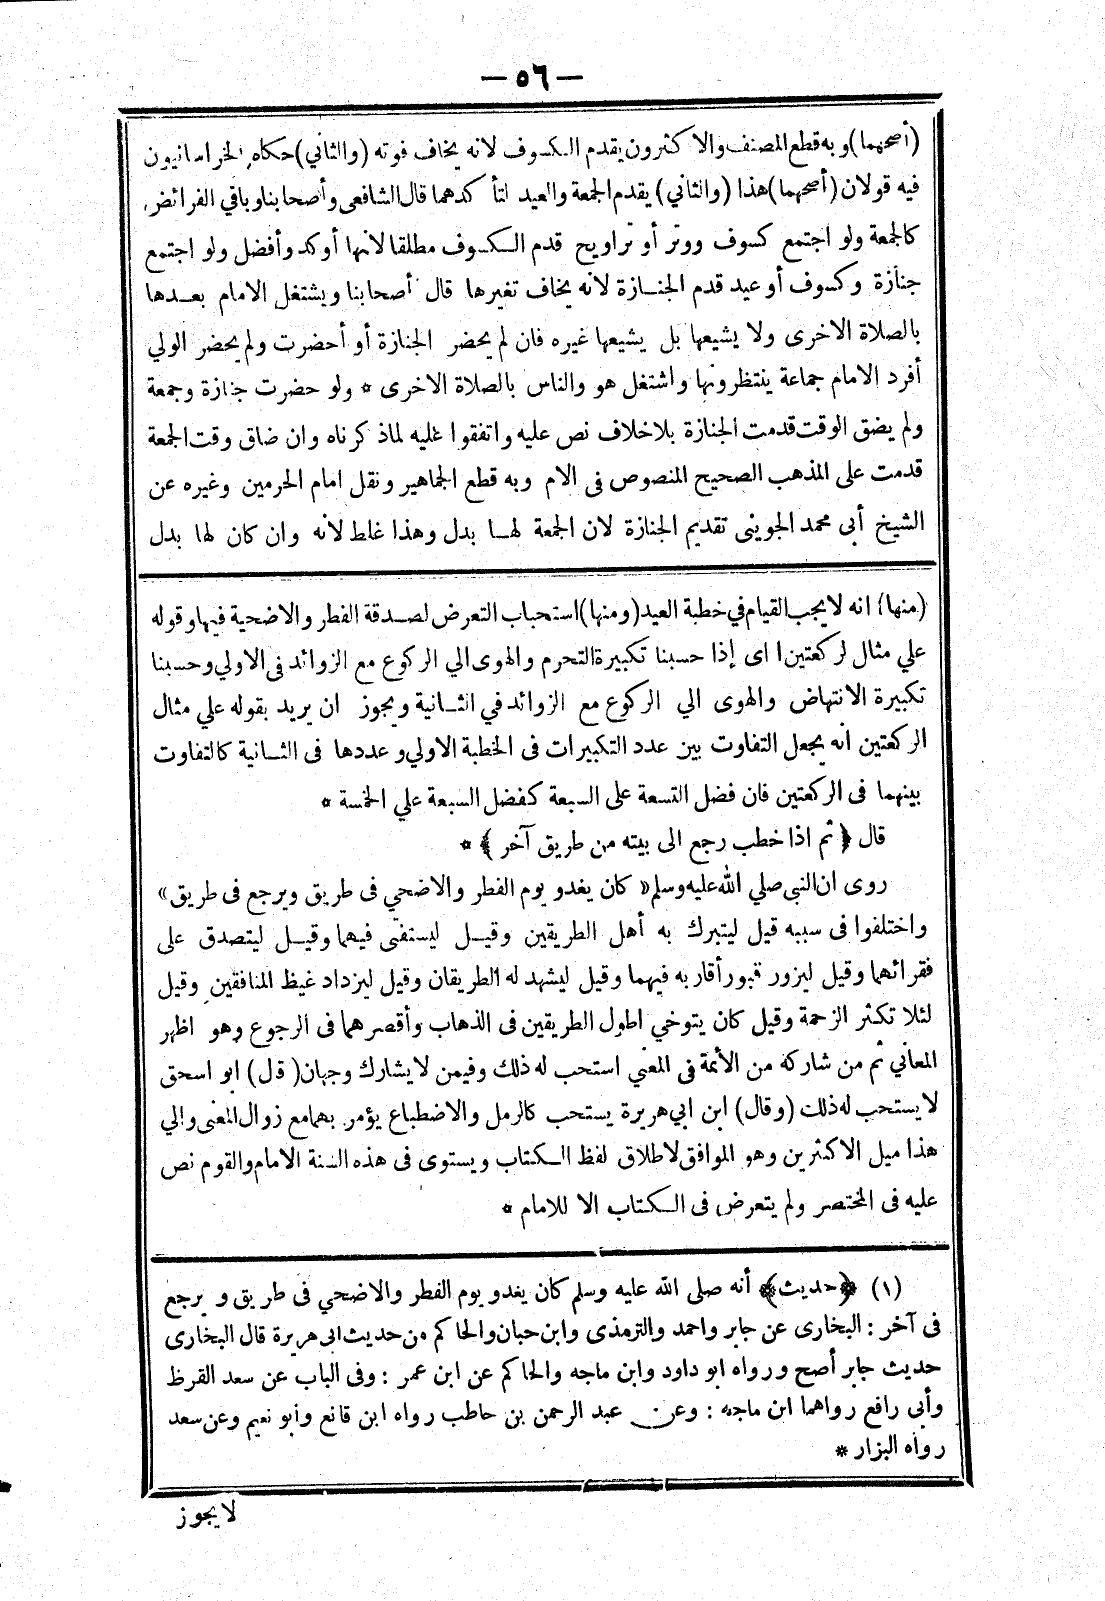 — ٥٦ —
(أصحهما) وبه قطع المصنف والاكثرون يقدم الكسوف لانه يخاف فوته (والثاني) حكاه الخراسانيون
فيه قولان (أصحهما) هذا (والثاني) يقدم الجمعة والعيد لتأكدهما قال الشافعى وأصحابنا وباقي الفرائض
كالجمعة ولو اجتمع كسوف ووتر أو تراويح قدم الكسوف مطلقا لانها أوكد وأفضل ولو اجتمع
جنازة وكسوف أو عيد قدم الجنازة لانه يخاف تغيرها قال أصحابنا ويشتغل الامام بعدها
بالصلاة الاخرى ولا يشيعها بل يشيعها غيره فان لم يحضر الجنازة أو أحضرت ولم يحضر الولي
أفرد الامام جماعة ينتظرونها واشتغل هو والناس بالصلاة الاخرى * ولو حضرت جنازة وجمعة
ولم يضق الوقت قدمت الجنازة بلا خلاف نص عليه واتفقوا عليه لماذكرناه وان ضاق وقت الجمعة
قدمت على المذهب الصحيح المنصوص فى الام وبه قطع الجماهير ونقل امام الحرمين وغيره عن
الشيخ أبي محمد الجوينى تقديم الجنازة لان الجمعة لها بدل وهذا غلط لانه وان كان لها بدل
(منها) انه لا يجب القيام في خطبة العيد (ومنها) استحباب التعرض لصدقة الفطر والاضحية فيها وقوله
علي مثال لركعتين اى إذا حسبنا تكبيرة التحرم والهوى الي الركوع مع الزوائد فى الاولي وحسبنا
تكبيرة الانتهاض والهوى الي الركوع مع الزوائد في الثانية ويجوز ان يريد بقوله علي مثال
الركعتين انه يجعل التفاوت بين عدد التكبيرات فى الخطبة الاولي وعددها فى الثانية كالتفاوت
بينهما فى الركعتين فان فضل التسعة على السبعة كفضل السبعة علي الخمسة *
قال ﴿ ثم اذا خطب رجع الى بيته من طريق آخر ﴾ *
روى ان النبي صلي الله عليه وسلم « كان يغدو يوم الفطر والاضحي فى طريق ويرجع فى طريق »
واختلفوا فى سببه قيل ليتبرك به أهل الطريقين وقيل ليستفتى فيهما وقيل ليتصدق على
فقرائهما وقيل ليزور قبور أقاربه فيهما وقيل ليشهد له الطريقان وقيل ليزداد غيظ المنافقين وقيل
لئلا تكثر الزحمة وقيل كان يتوخي اطول الطريقين فى الذهاب وأقصرهما فى الرجوع وهو اظهر
المعاني ثم من شاركه من الأئمة فى المعني استحب له ذلك وفيمن لا يشارك وجهان (قال) ابو اسحق
لا يستحب له ذلك (وقال) ابن ابي هريرة يستحب كالرمل والاضطباع يؤمر بهما مع زوال المعنى والي
هذا ميل الاكثرين وهو الموافق لاطلاق لفظ الكتاب ويستوى فى هذه السنة الامام والقوم نص
عليه فى المختصر ولم يتعرض فى الكتاب الا للامام *
(١) ﴿حديث﴾ أنه صلى الله عليه وسلم كان يغدو يوم الفطر والاضحي فى طريق ويرجع
فى آخر : البخارى عن جابر واحمد والترمذى وابن حبان والحاكم من حديث ابى هريرة قال البخارى
حديث جابر أصح ورواه ابو داود وابن ماجه والحاكم عن ابن عمر : وفى الباب عن سعد القرظ
وأبى رافع رواهما ابن ماجه : وعن عبد الرحمن بن حاطب رواه ابن قانع وأبو نعيم وعن سعد
رواه البزار *
لا يجوز